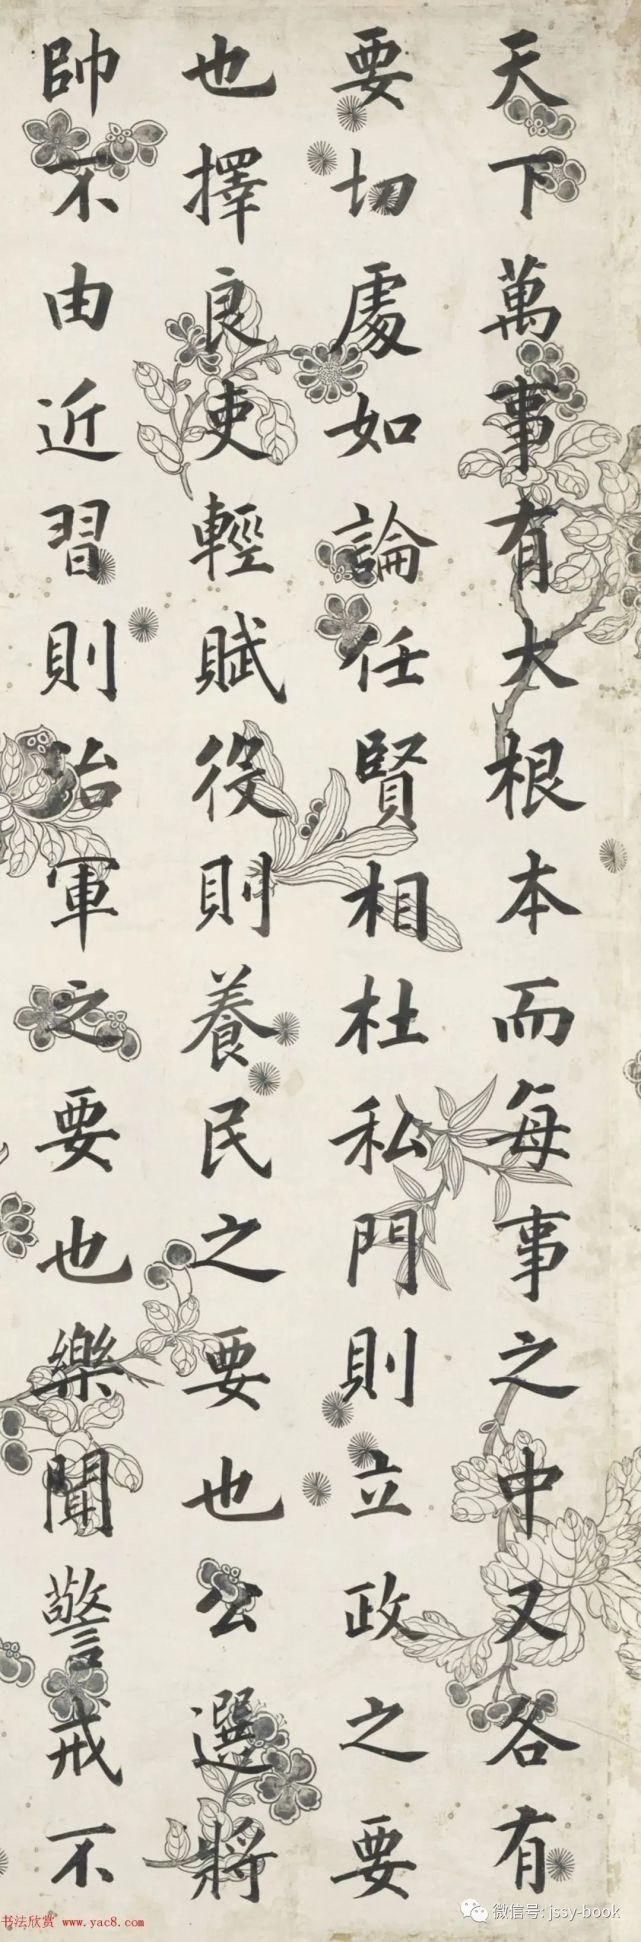 天下萬事有大根本而每事之中又各有
要切處如論任賢相杜私門則立政之要
也擇良吏輕賦役則養民之要也公選將
帥不由近習則治軍之要也樂聞警戒不
书法欣赏 www.yac8.com
微信号: jssy-book